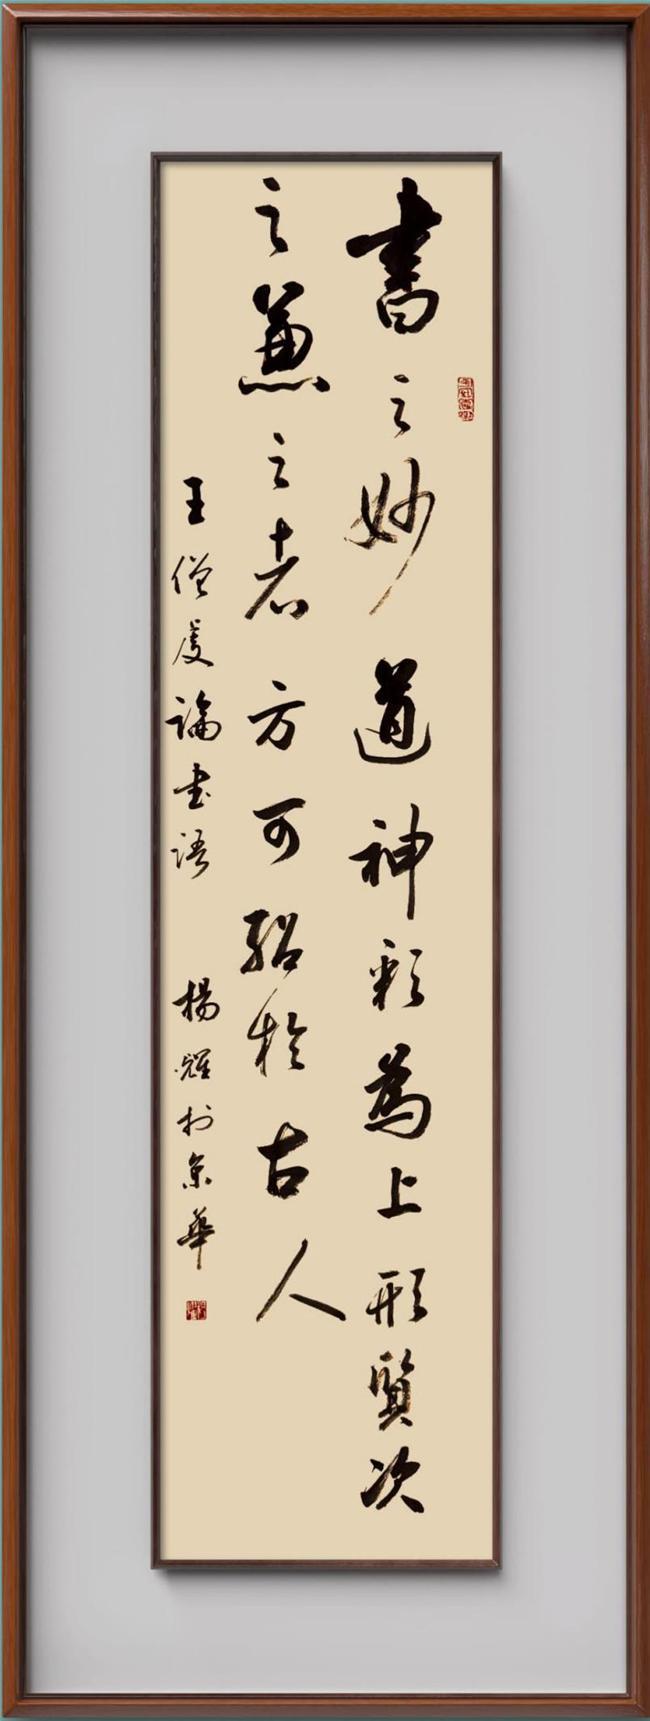 書之妙道神彩為上形質次
之兼之者方可紹於古人
王僧虔論書語 楊耀於京華